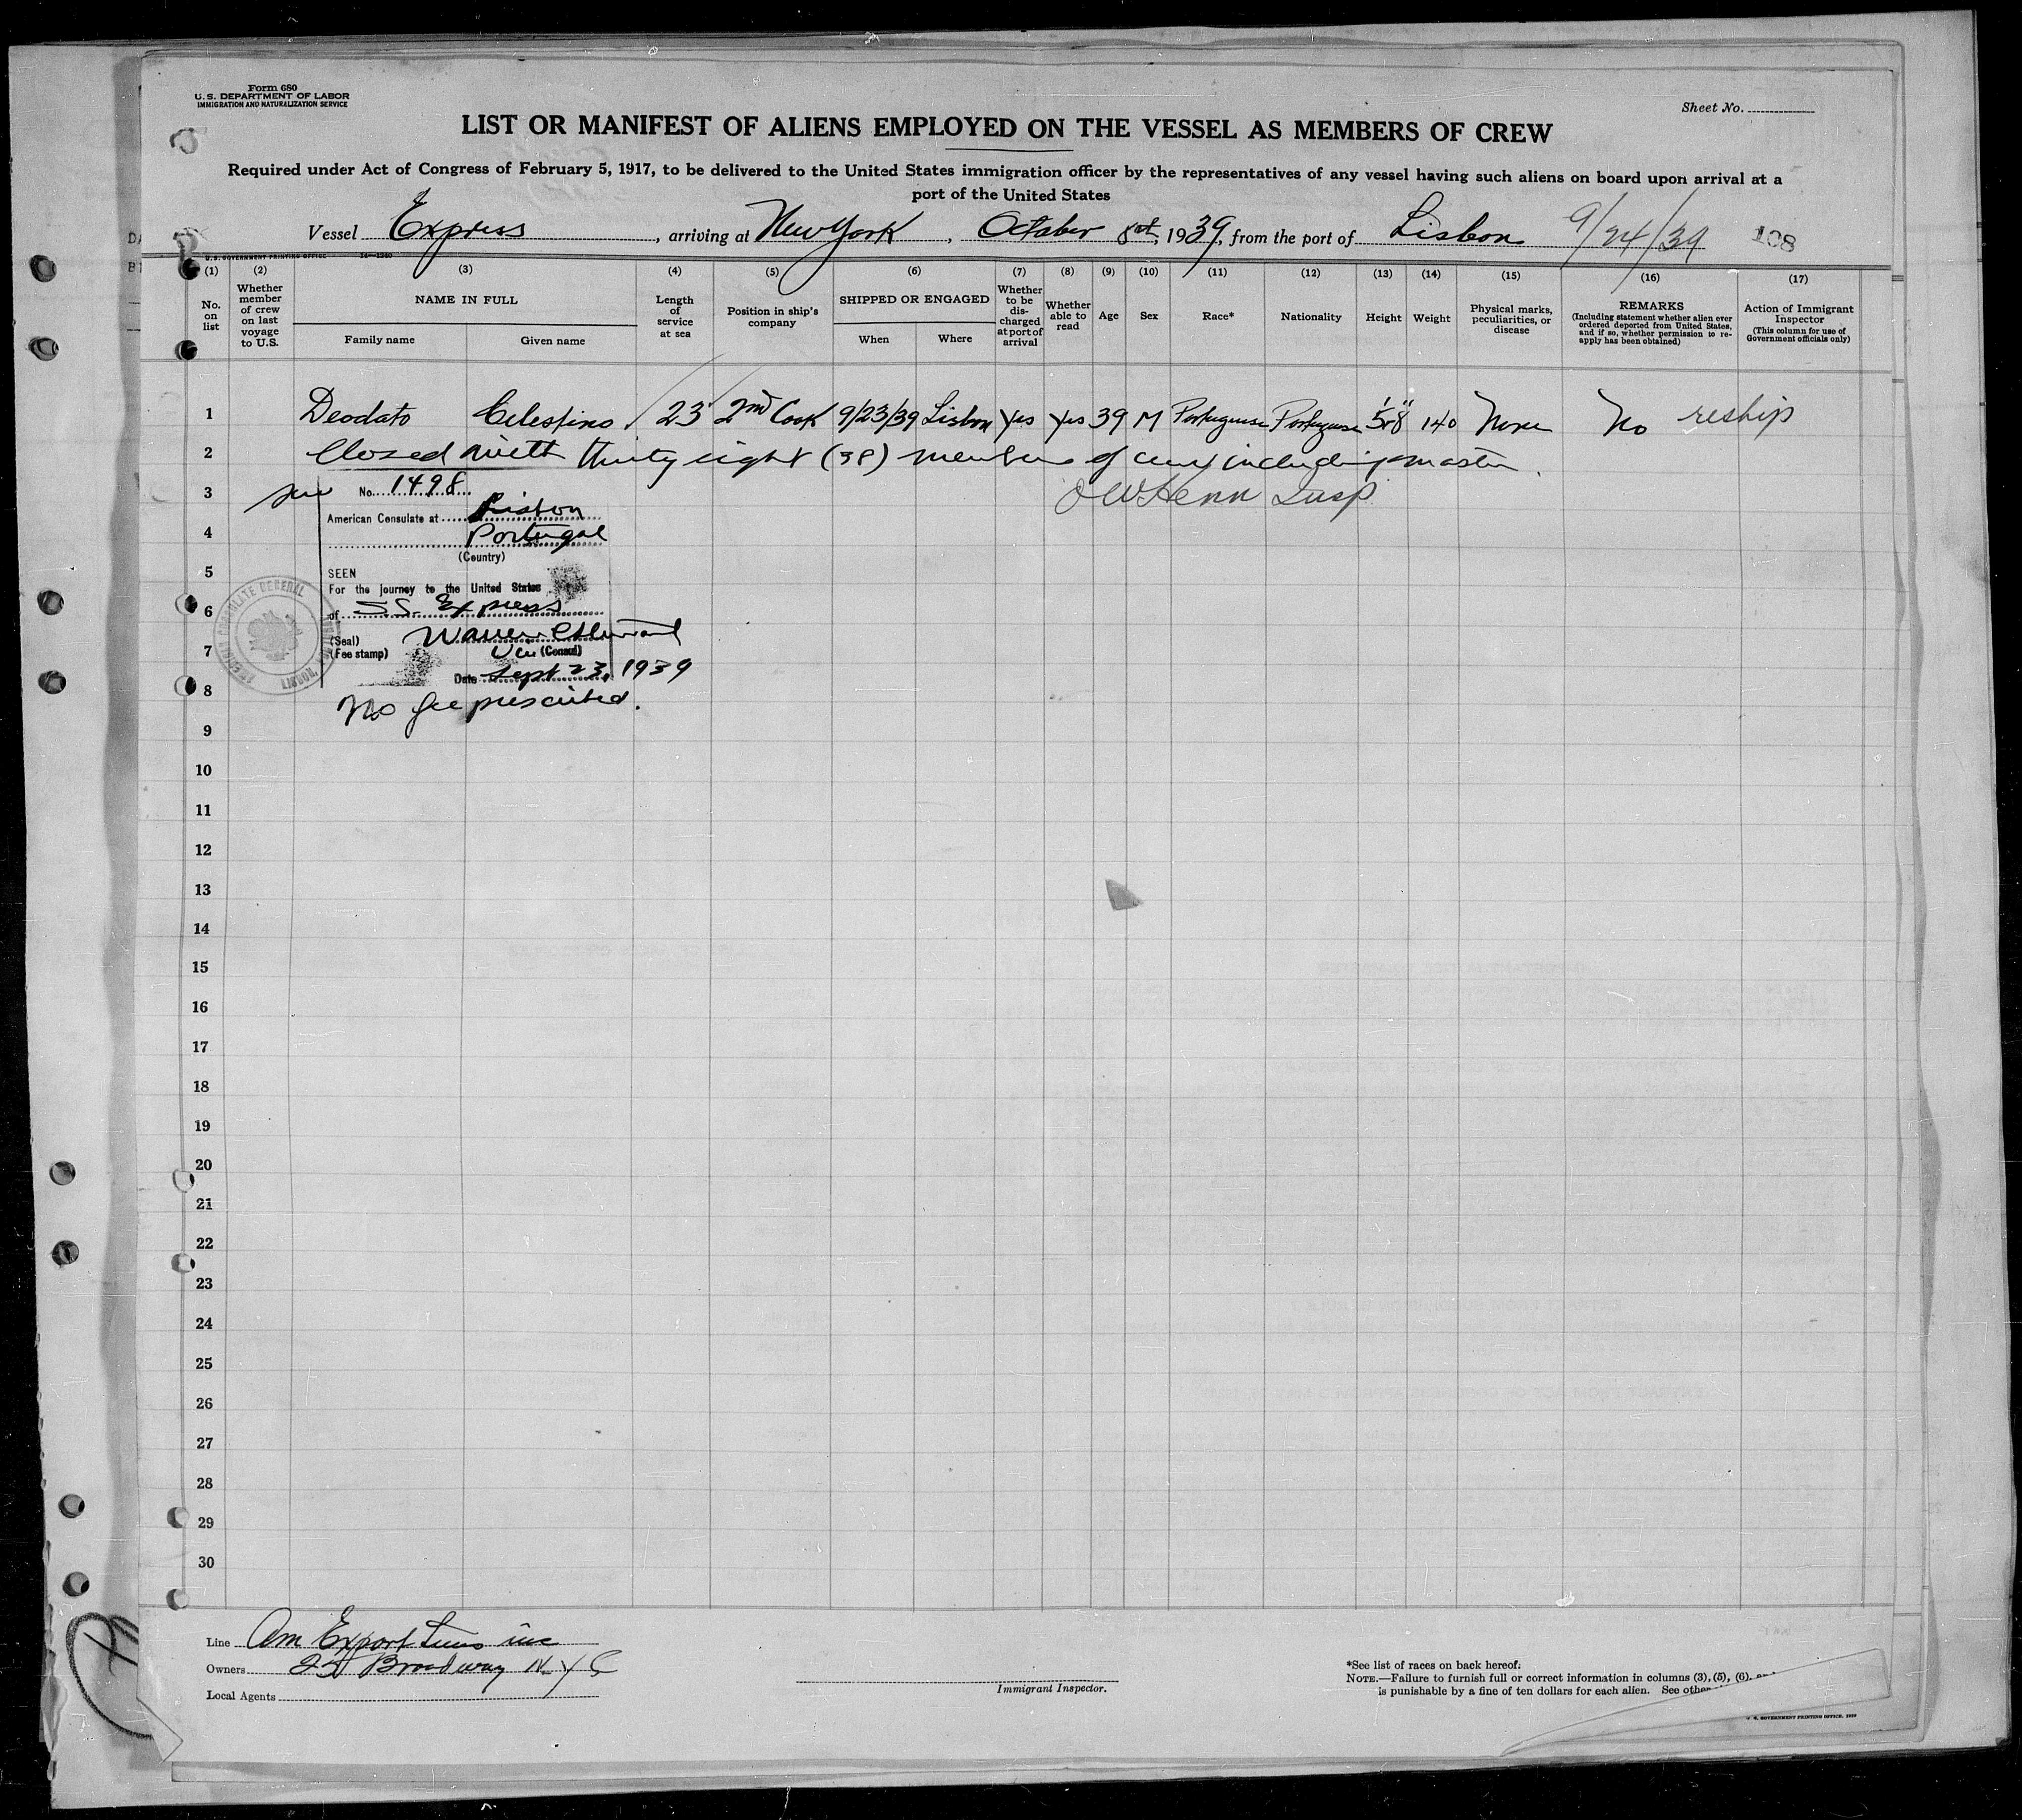 Form 680
U. S. DEPARTMENT OF LABOR
IMMIGRATION AND NATURALIZATION SERVICE
Sheet No.
LIST OR MANIFEST OF ALIENS EMPLOYED ON THE VESSEL AS MEMBERS OF CREW
Required under Act of Congress of February 5, 1917, to be delivered to the United States immigration officer by the representatives of any vessel having such aliens on board upon arrival at a
port of the United States
Vessel Express, arriving at New York, October 1939, from the port of Lisbon 9/24/39 108
U. S. GOVERNMENT PRINTING OFFICE
(1) (2) (3) (4) (5) (6) (7) (8) (9) (10) (11) (12) (13) (14) (15) (16) (17)
No. on list
Whether member of crew on last voyage to U.S.
NAME IN FULL
Family name
Given name
Length of service at sea
Position in ship's company
SHIPPED OR ENGAGED
When
Where
Whether to be discharged at port of arrival
Whether able to read
Age
Sex
Race*
Nationality
Height
Weight
Physical marks, peculiarities, or disease
REMARKS
(Including statement whether alien ever ordered deported from United States, and if so, whether permission to reapply has been obtained)
Action of Immigrant Inspector
(This column for use of Government officials only)
1 Deodato Celestino 23 2nd Cook 9/23/39 Lisbon Yes Yes 39 M Portuguese Portuguese 5'8" 140 None No reship
2 Closed with thirty eight (38) members of crew including master.
3
No. 1498
American Consulate at Lisbon
4
Portugal
(Country)
5
SEEN
For the journey to the United States
6
of SS. Express
(Seal)
7
(Fee stamp)
Vice (Consul)
Date Sept 23, 1939
8
No fee prescribed.
9
10
11
12
13
14
15
16
17
18
19
20
21
22
23
24
25
26
27
28
29
30
Line Am Export Lines inc
Owners 25 Broadway N Y C
Local Agents
Immigrant Inspector.
*See list of races on back hereof.
NOTE.—Failure to furnish full or correct information in columns (3), (5), (6),
is punishable by a fine of ten dollars for each alien. See other
U. S. GOVERNMENT PRINTING OFFICE